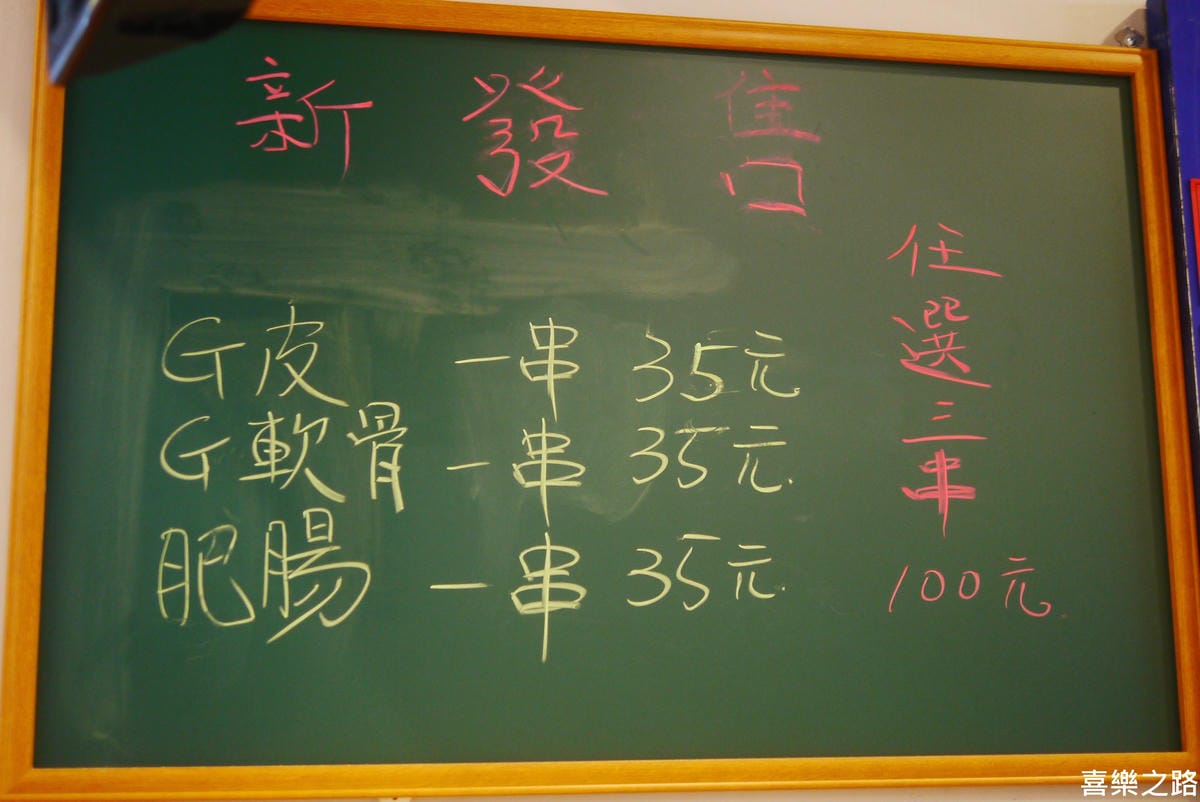 新發售
G皮 一串 35元
G軟骨 一串 35元.
肥腸 一串 35元.
任選三串
100元.
喜樂之路